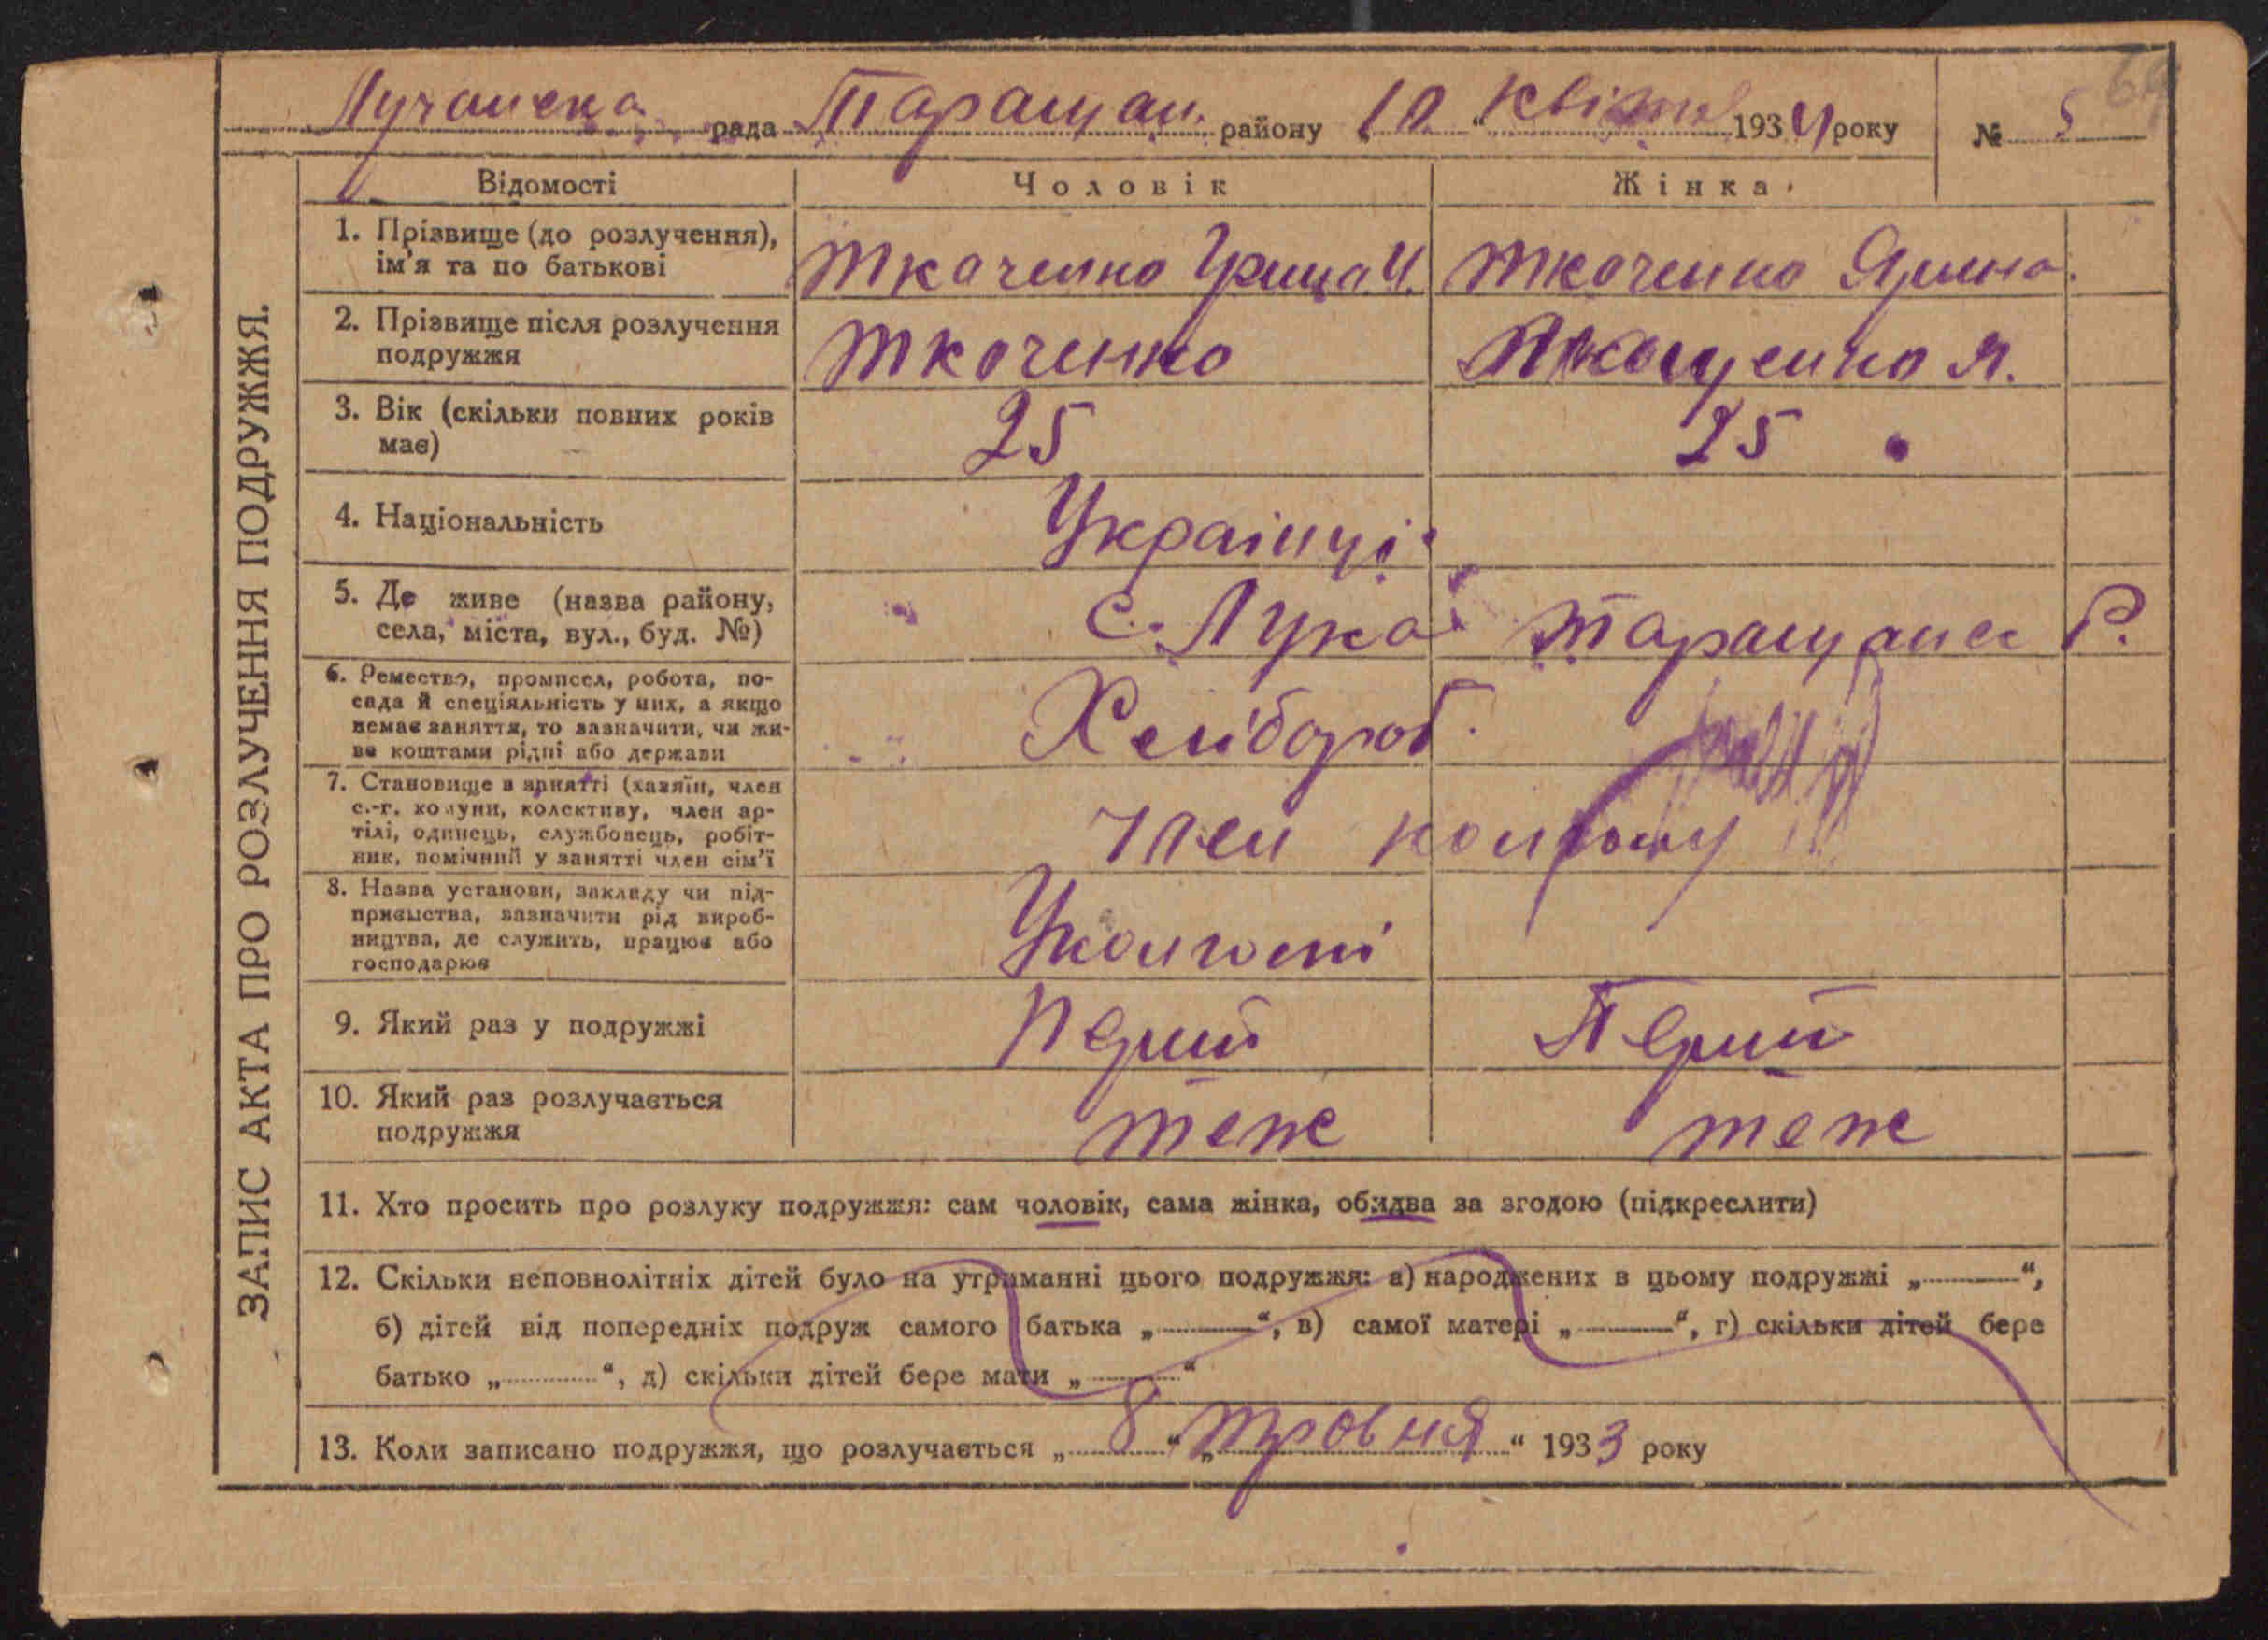 69
Лучанска рада Таращан. району „10“ Квітня 1934 року № 5
ЗАПИС АКТА ПРО РОЗЛУЧЕННЯ ПОДРУЖЖЯ.
Відомості Чоловік Жінка
1. Прізвище (до розлучення), ім'я та по батькові Ткаченко Гриша И. Ткаченко Ярина.
2. Прізвище після розлучення подружжя Ткаченко Якащенко Я.
3. Вік (скільки повних років має) 25 25
4. Національність Українці
5. Де живе (назва району, села, міста, вул., буд. №) с. Лука Таращанск Р.
6. Ремество, промисел, робота, посада й спеціяльність у них, а якщо немає заняття, то зазначити, чи живе коштами рідні або держави Хлібороб.
7. Становище в занятті (хазяїн, член с.-г. комуни, колективу, член артілі, одинець, службовець, робітник, помічний у занятті член сім'ї Член колгоспу
8. Назва установи, закладу чи підприємства, зазначити рід виробництва, де служить, працює або господарює У колгоспі
9. Який раз у подружжі Перий Перий
10. Який раз розлучається подружжя теж теж
11. Хто просить про розлуку подружжя: сам чоловік, сама жінка, обидва за згодою (підкреслити)
12. Скільки неповнолітніх дітей було на утриманні цього подружжя: а) народжених в цьому подружжі „————“,
б) дітей від попередніх подруж самого батька „————“, в) самої матері „————“, г) скільки дітей бере
батько „............“, д) скільки дітей бере мати „............“
13. Коли записано подружжя, що розлучається „8“ „травня“ 1933 року